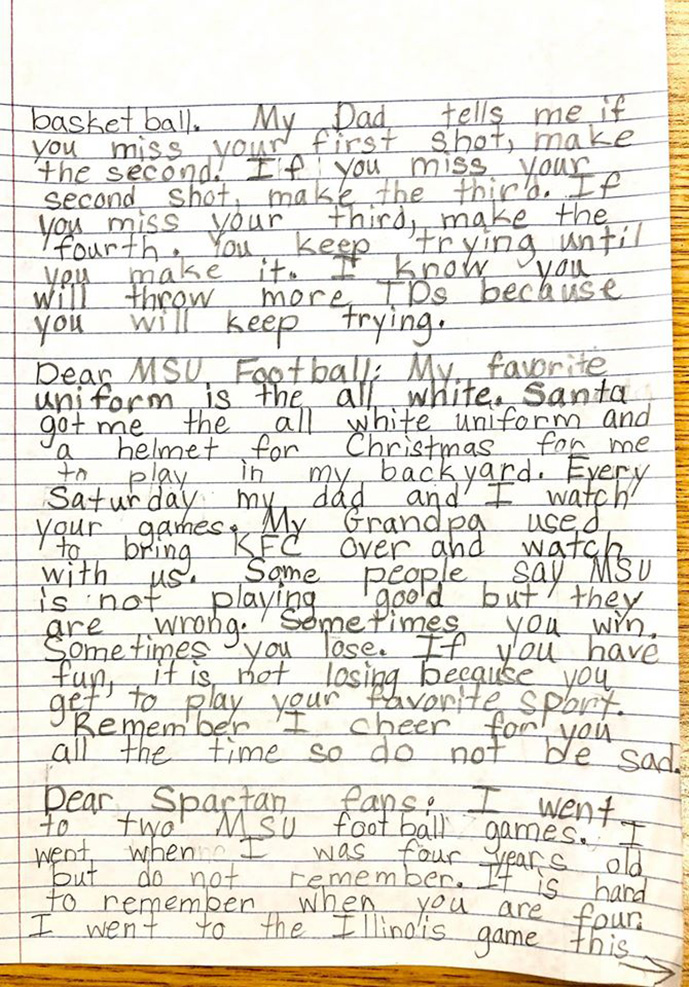 basketball. My Dad tells me if
you miss your first shot, make
the second. If you miss your
second shot, make the third. If
you miss your third, make the
fourth. You keep trying until
you make it. I know you
will throw more TDs because
you will keep trying.
Dear MSU Football: My favorite
uniform is the all white. Santa
got me the all white uniform and
a helmet for Christmas for me
to play in my backyard. Every
Saturday my dad and I watch
your games. My Grandpa used
to bring KFC over and watch
with us. Some people say MSU
is not playing good but they
are wrong. Sometimes you win.
Sometimes you lose. If you have
fun, it is not losing because you
get to play your favorite sport.
Remember I cheer for you
all the time so do not be sad.
Dear Spartan fans: I went
to two MSU football games. I
went when I was four years old
but do not remember. It is hard
to remember when you are four.
I went to the Illinois game this